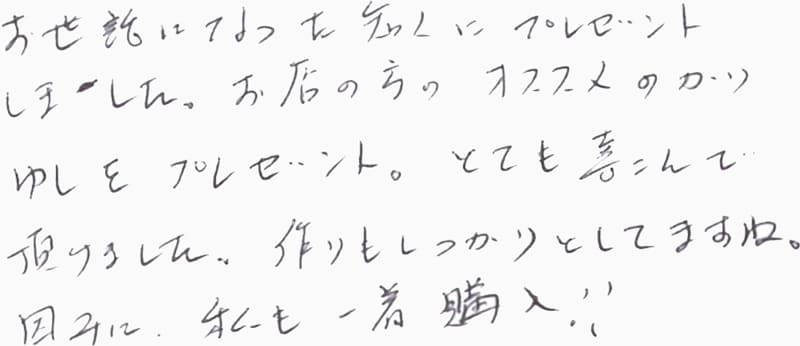 お世話になった知人にプレゼント
しました。お店の方の オススメのかり
ゆしを プレゼント。とても喜こんで
頂けました。作りもしっかりとしてますね。
因みに、私も一着購入!!